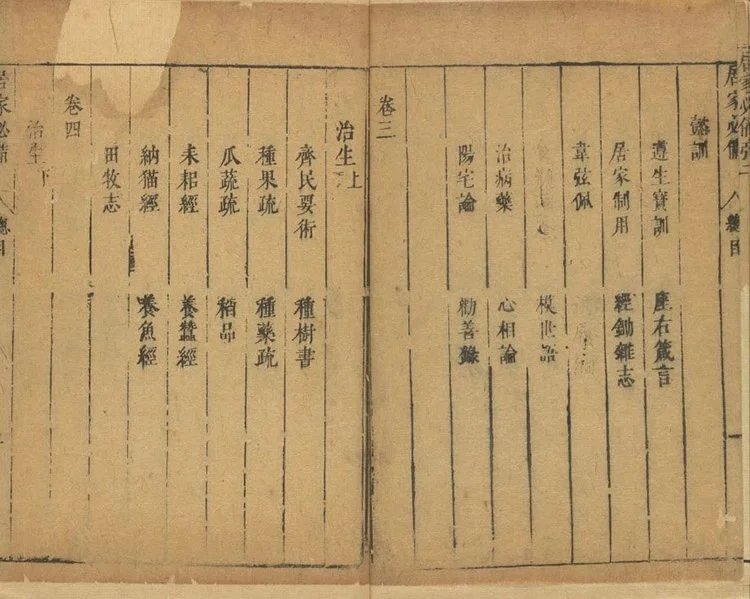 居家必備 總目
懿訓
遵生寶訓 座右箴言
居家制用 經鋤雜志
韋弦佩
模世語
治病藥 心相論
陽宅論 勸善錄
卷三
治生上
齊民要術 種樹書
種果疏 種藥疏
瓜蔬疏 稻品
耒耜經 養蠶經
納猫經 養魚經
田牧志
卷四
治生下
居家必備 總目